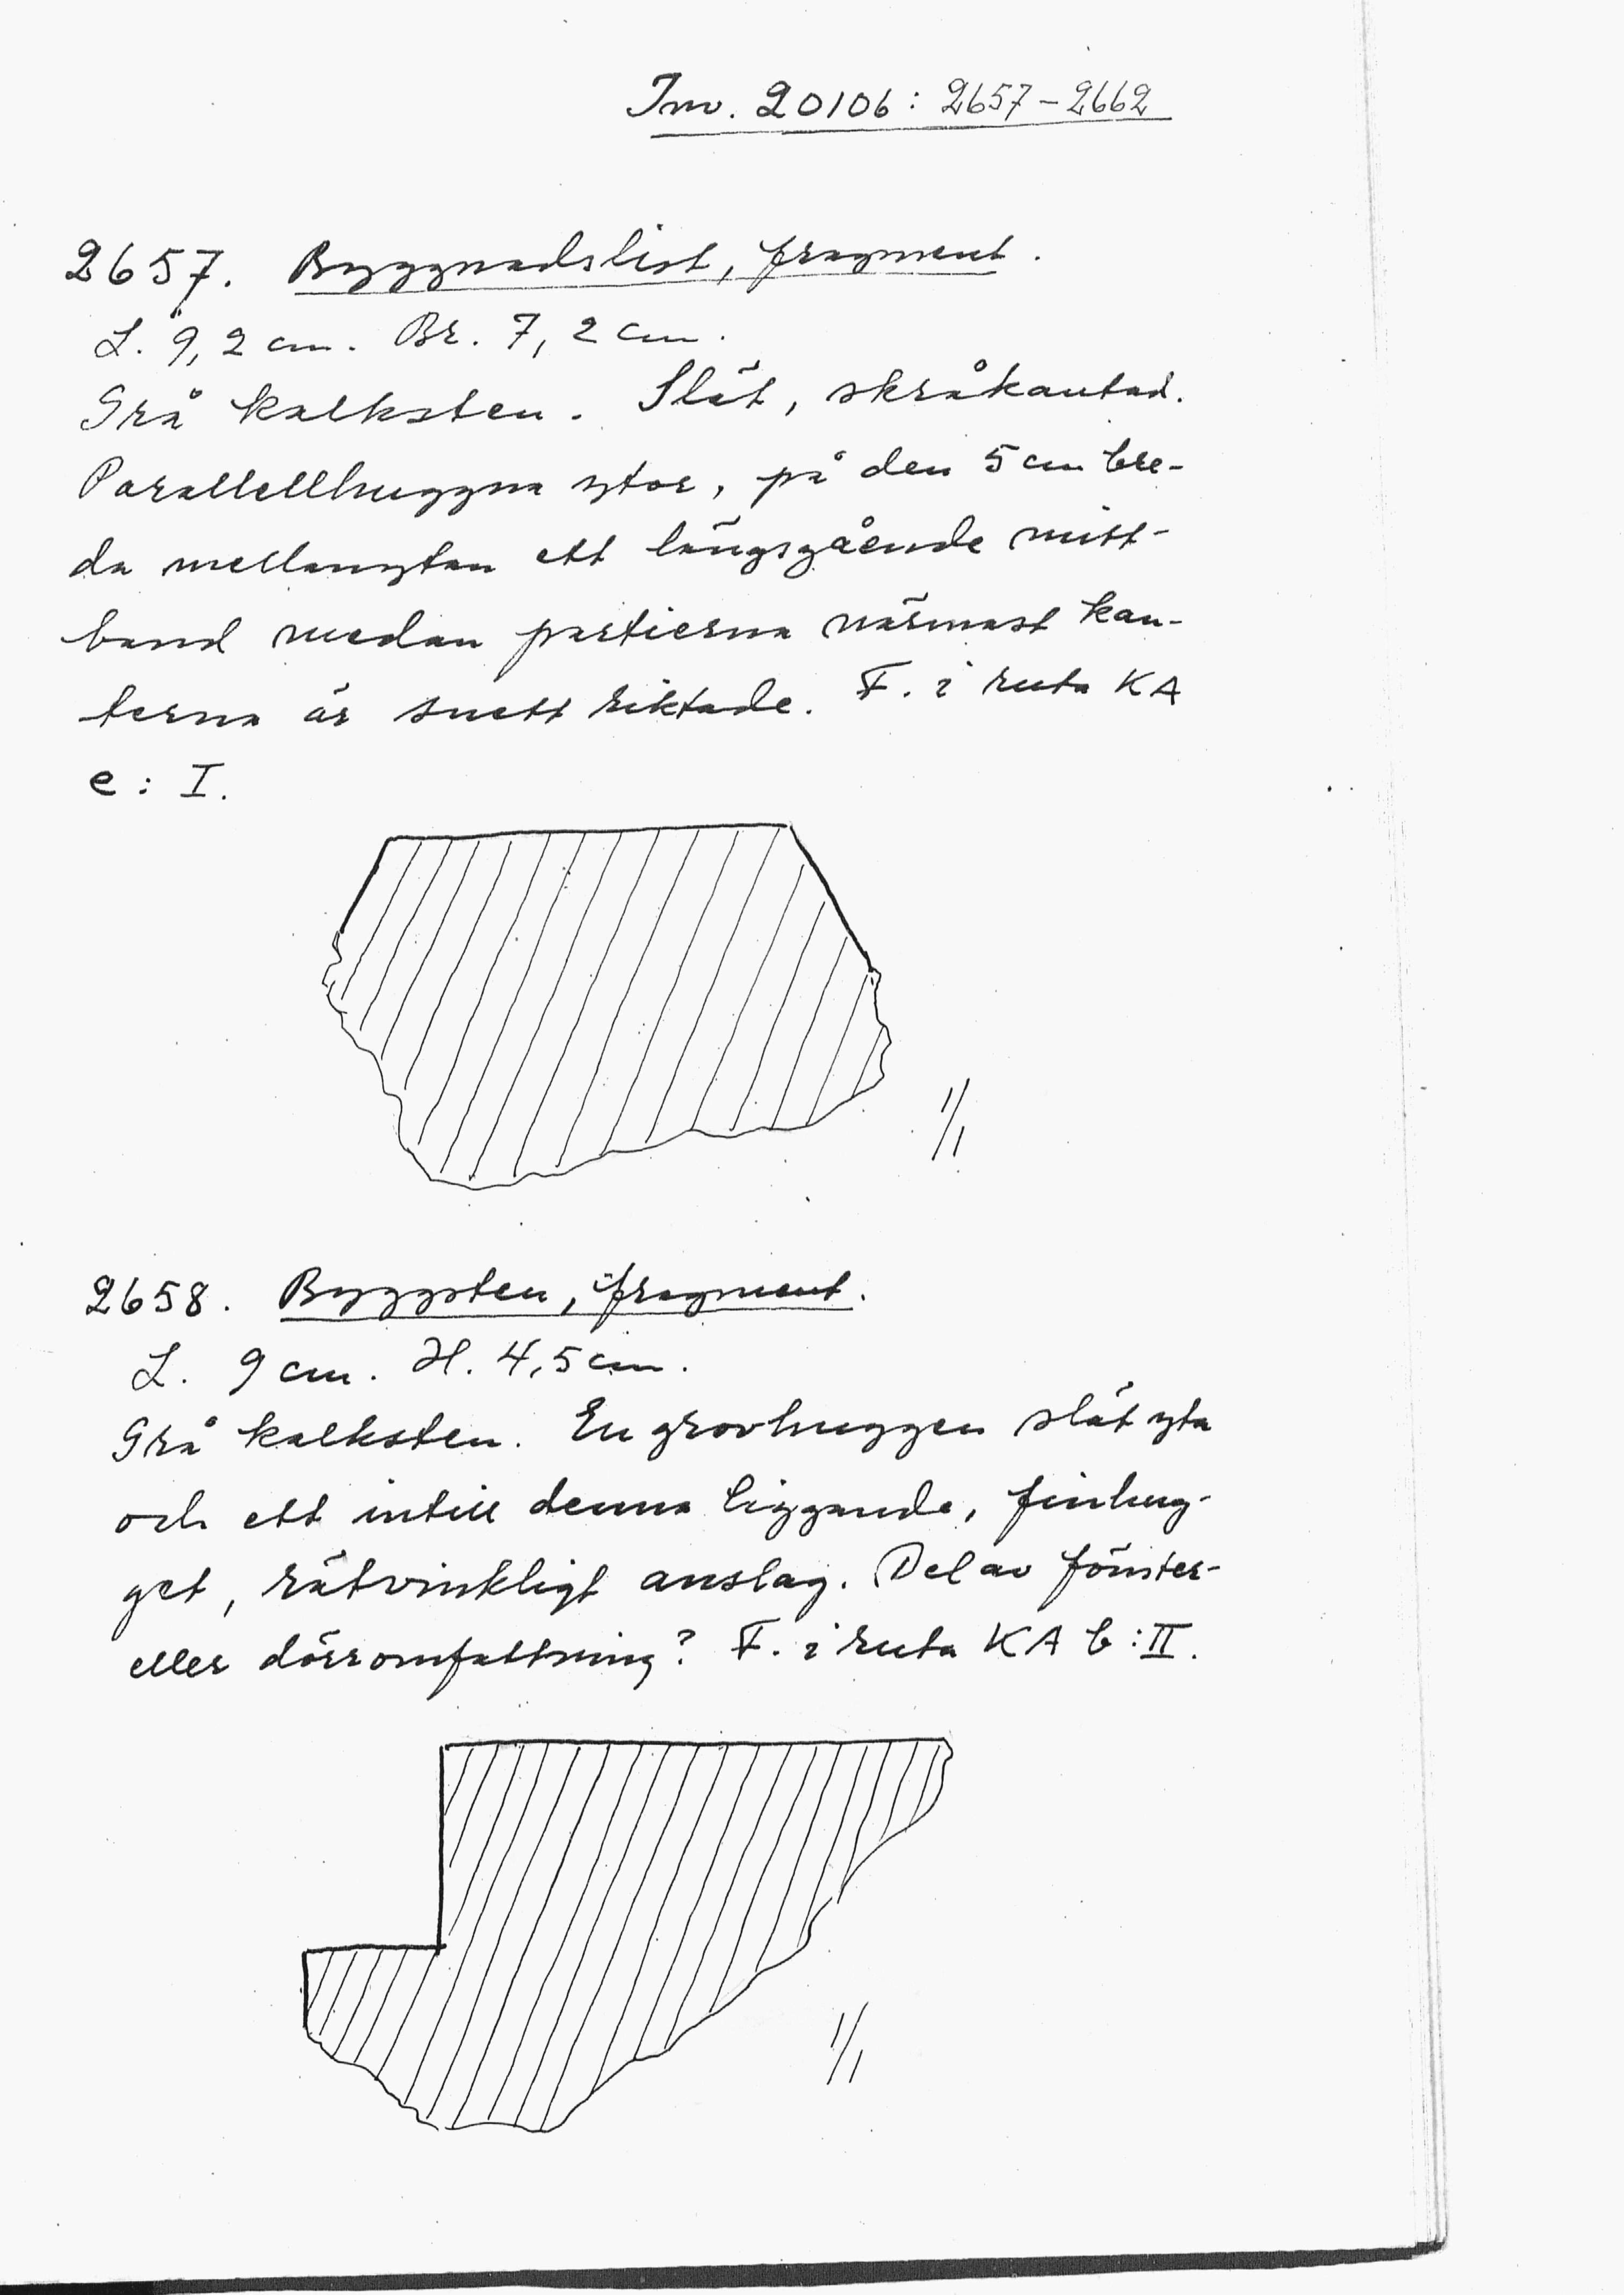 Inv. 20106: 2657-2662
2657. Byggnadslist, fragment.
L. 9,2 cm. Br. 7,2 cm.
Grå kalksten. Slät, skråkantad.
Parallellhuggna ytor, på den 5 cm bre-
da mellanytan ett längsgående mitt-
band medan partierna närmast kan-
terna är snett riktade. F. i ruta KA
e: I.
1/1
2658. Byggsten, fragment.
L. 9 cm. H. 4,5 cm.
Grå kalksten. En grovhuggen slät yta
och ett intill denna liggande, finhug-
get, rätvinkligt anslag. Del av fönster-
eller dörromfattning? F. i ruta KA b: II.
1/1